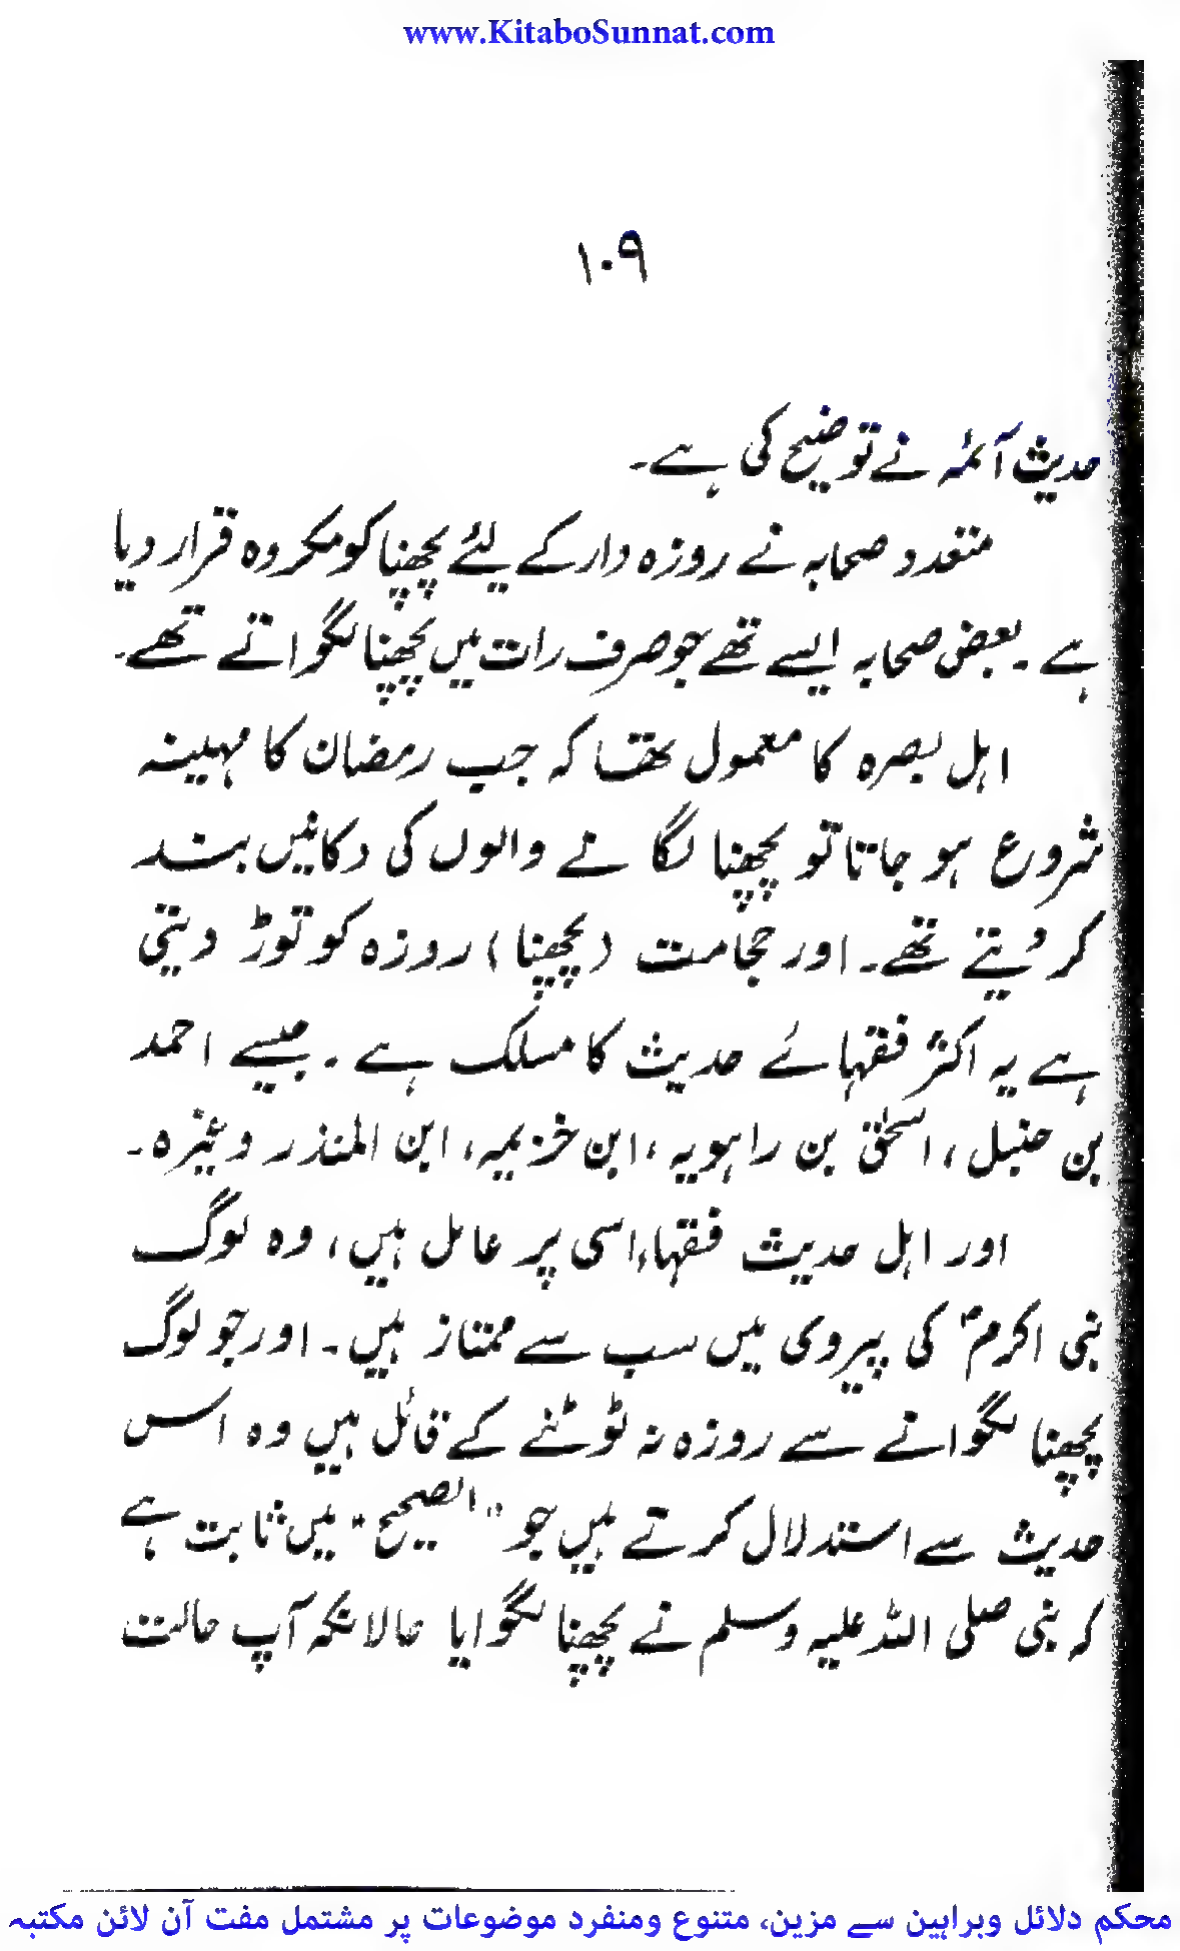 www.KitaboSunnat.com
۱۰۹
حدیث آئمہ نے توضیح کی ہے۔
متعدد صحابہ نے روزہ دار کے لئے پچھنا کو مکروہ قرار دیا
ہے ۔ بعض صحابہ ایسے تھے جو صرف رات میں پچھنا لگواتے تھے۔
اہل بصرہ کا معمول تھا کہ جب رمضان کا مہینہ
شروع ہو جاتا تو پچھنا لگانے والوں کی دکانیں بند
کر دیتے تھے۔ اور حجامت (پچھنا) روزہ کو توڑ دیتی
ہے یہ اکثر فقہائے حدیث کا مسلک ہے ۔ جیسے احمد
بن حنبل ، اسحٰق بن راہویہ ، ابن خزیمہ ، ابن المنذر وغیرہ ۔
اور اہل حدیث فقہاء اسی پر عامل ہیں ، وہ لوگ
نبی اکرمؐ کی پیروی میں سب سے ممتاز ہیں ۔ اور جو لوگ
پچھنا لگوانے سے روزہ نہ ٹوٹنے کے قائل ہیں وہ اس
حدیث سے استدلال کرتے ہیں جو "الصحیح" میں ثابت ہے
کہ نبی صلی اللہ علیہ وسلم نے پچھنا لگوایا حالانکہ آپ حالت
محکم دلائل وبراہین سے مزین، متنوع ومنفرد موضوعات پر مشتمل مفت آن لائن مکتبہ